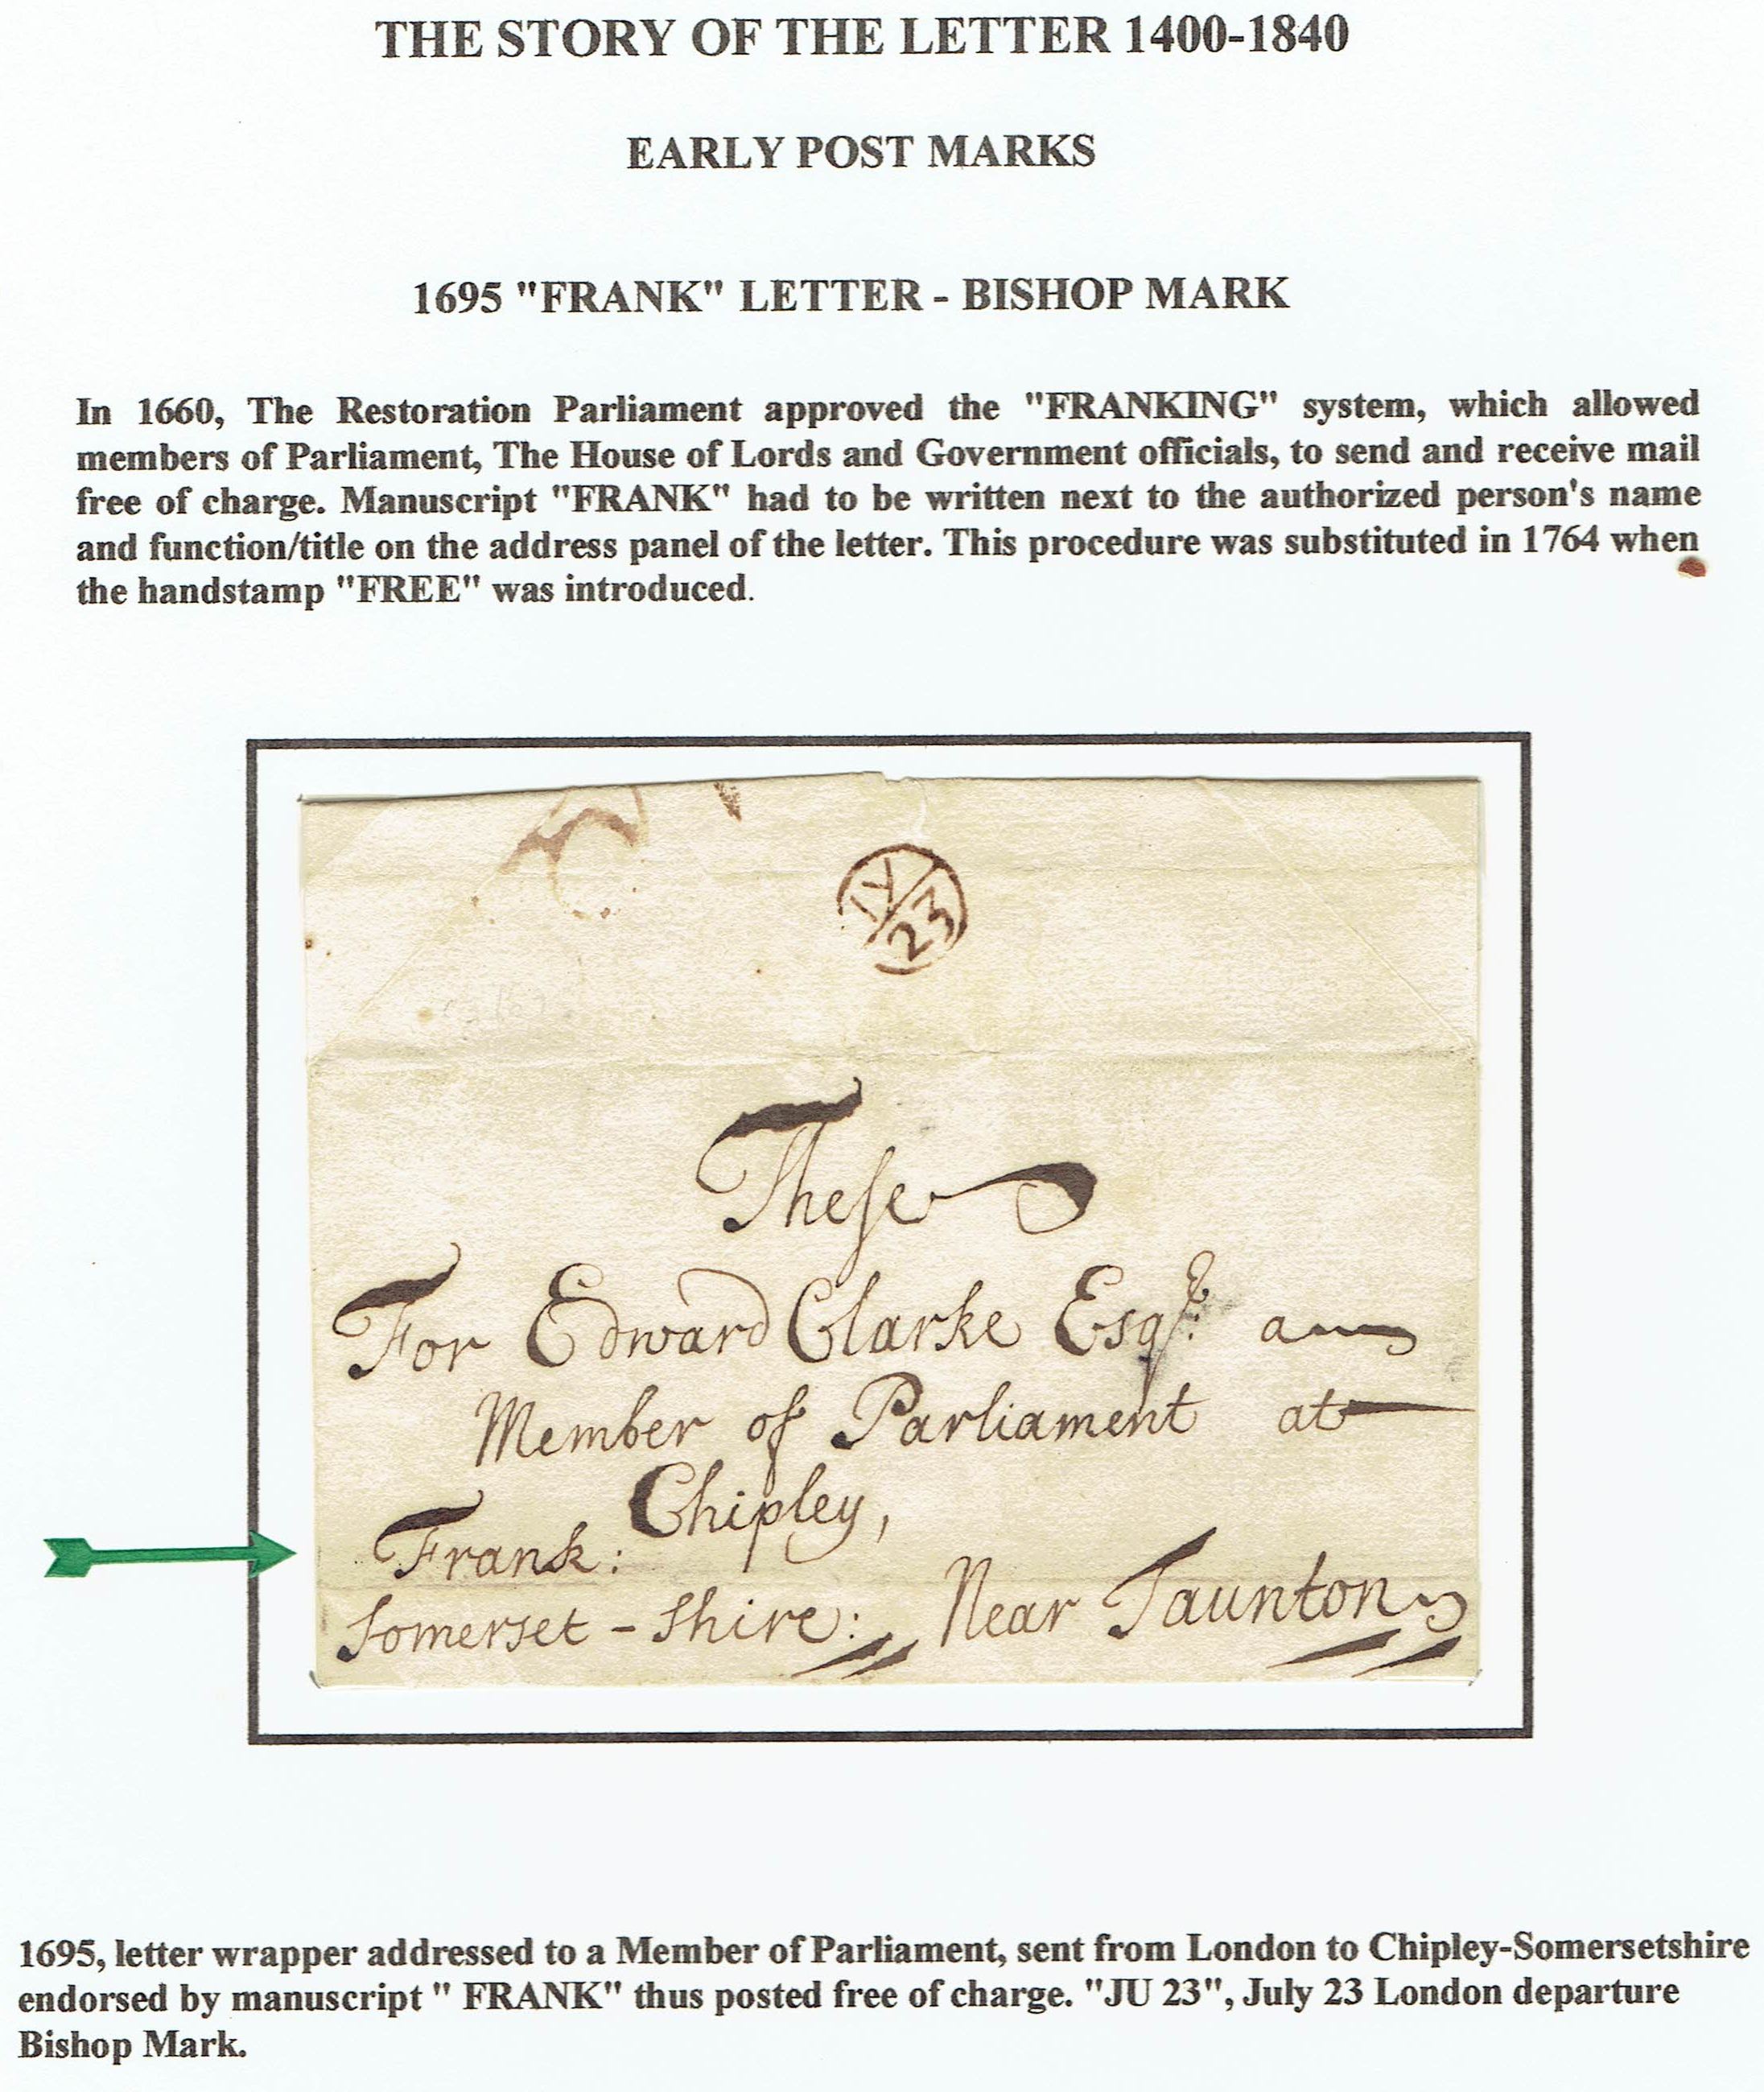 THE STORY OF THE LETTER 1400-1840
EARLY POST MARKS
1695 "FRANK" LETTER - BISHOP MARK
In 1660, The Restoration Parliament approved the "FRANKING" system, which allowed
members of Parliament, The House of Lords and Government officials, to send and receive mail
free of charge. Manuscript "FRANK" had to be written next to the authorized person's name
and function/title on the address panel of the letter. This procedure was substituted in 1764 when
the handstamp "FREE" was introduced.
IY
23
Theſe
For Edward Clarke Esqr: a
Member of Parliament at
Chipley,
Frank:
Somerset - Shire: Near Taunton
1695, letter wrapper addressed to a Member of Parliament, sent from London to Chipley-Somersetshire
endorsed by manuscript " FRANK" thus posted free of charge. "JU 23", July 23 London departure
Bishop Mark.